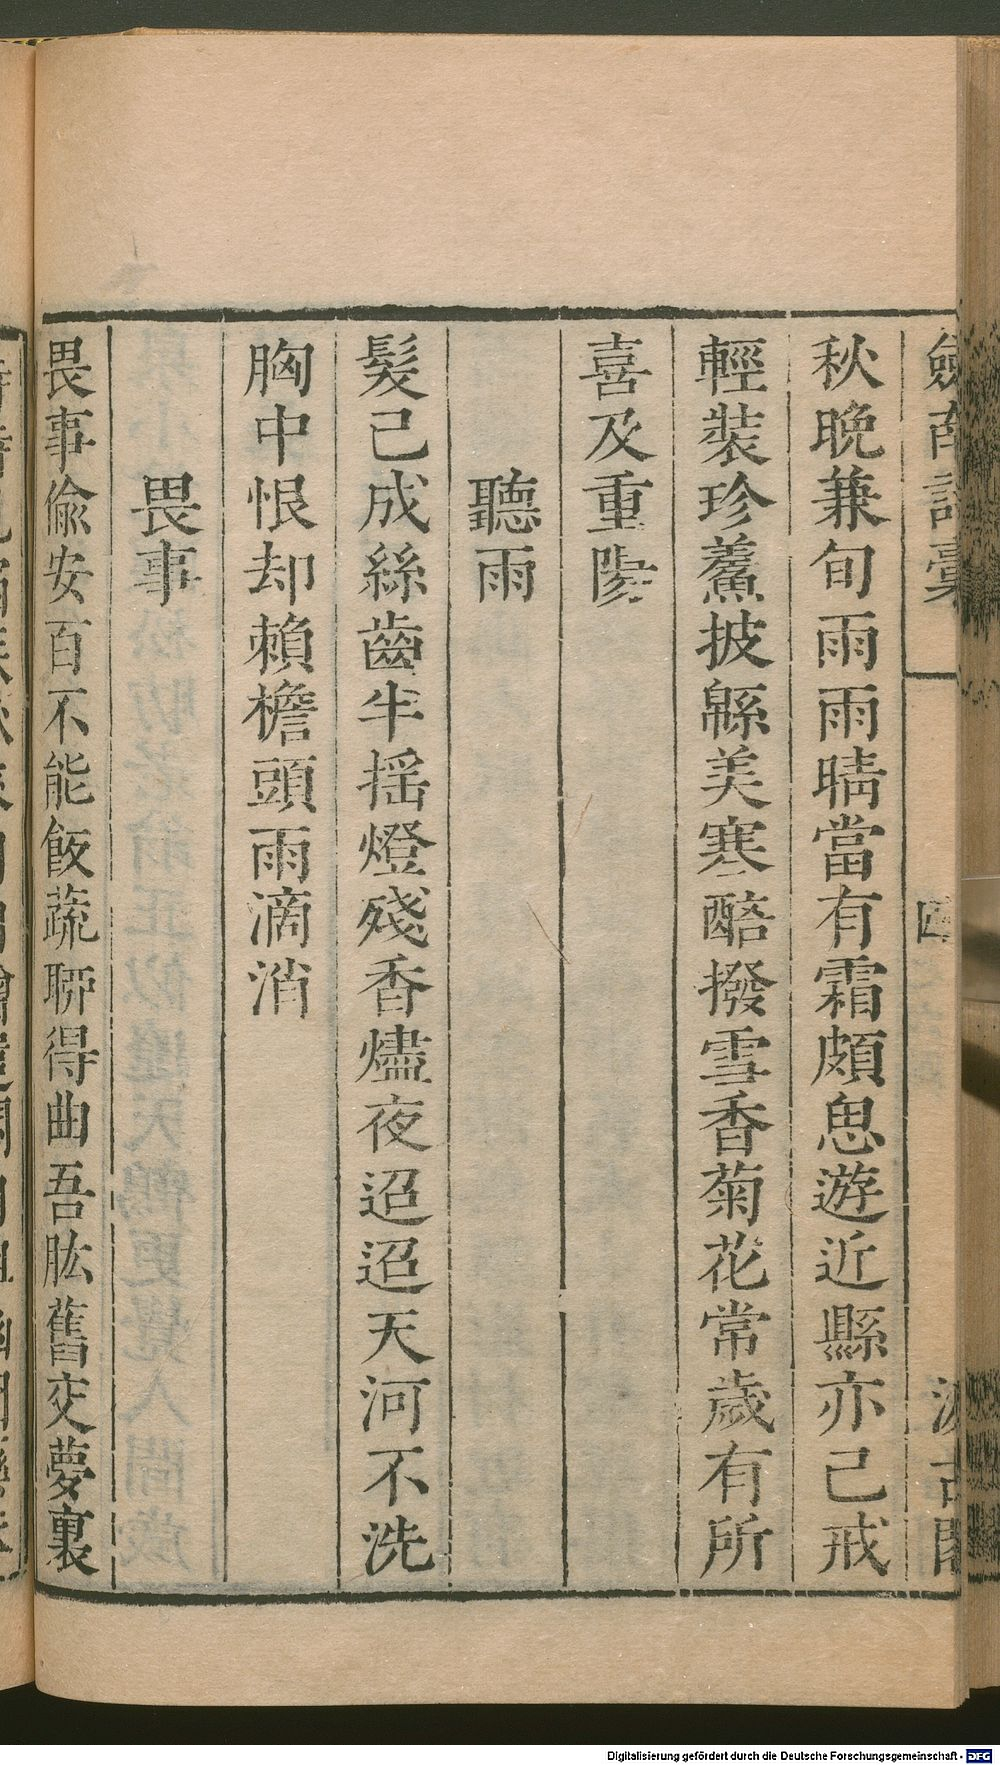 劒南詩稾 四 汲古閣
秋晚兼旬雨雨晴當有霜頗思遊近縣亦已戒
輕裝珍鱶披緜美寒醅撥雪香菊花常歲有所
喜及重陽
聽雨
髮已成絲齒半搖燈殘香燼夜迢迢天河不洗
胸中恨却賴檐頭雨滴消
畏事
畏事偷安百不能飯蔬聊得曲吾肱舊交夢裏
Digitalisierung gefördert durch die Deutsche Forschungsgemeinschaft - DFG